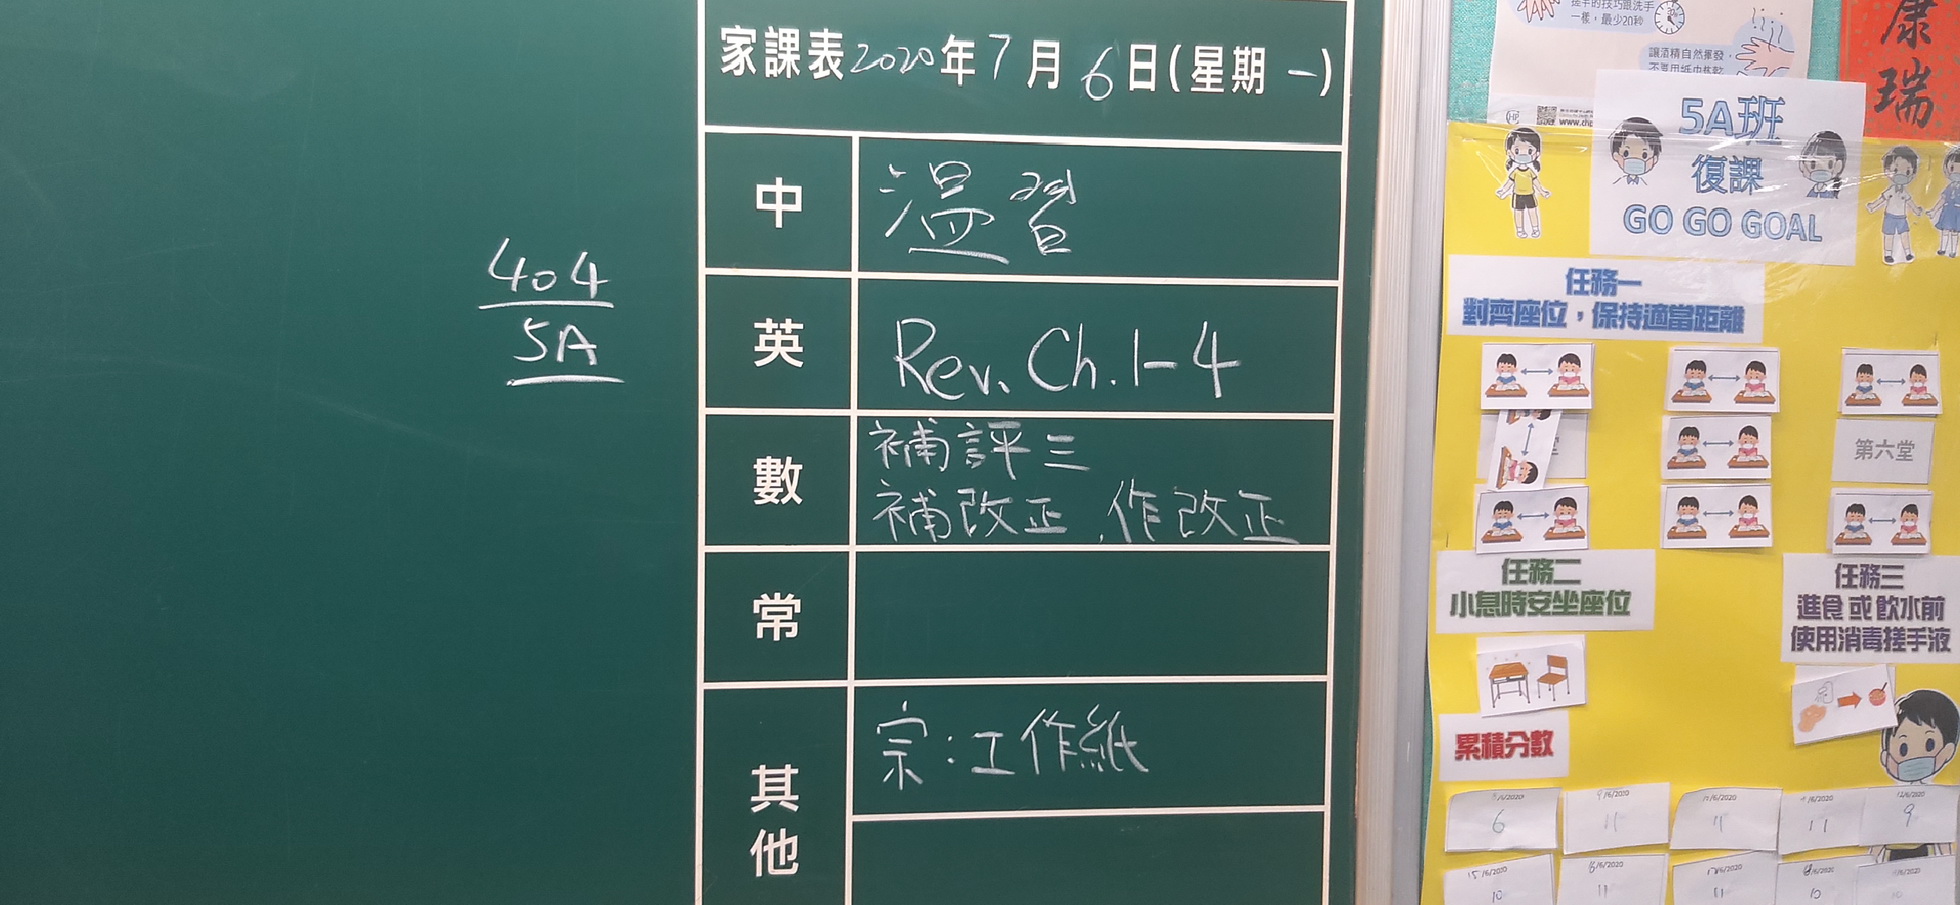 404
5A
家課表2020年7月6日(星期一)
中
溫習
英
Rev. Ch. 1-4
數
補評三
補改正、作改正
常
其他
宗:工作紙
搓手的技巧跟洗手
一樣,最少20秒
讓酒精自然揮發,
不要用紙巾抹乾
康
瑞
5A班
復課
GO GO GOAL
任務一
對齊座位,保持適當距離
第六堂
任務二
小息時安坐座位
任務三
進食或飲水前
使用消毒搓手液
累積分數
6
9/6/2020
11
11
11
12/6/2020
9
15/6/2020
10
16/6/2020
11
17/6/2020
11
10